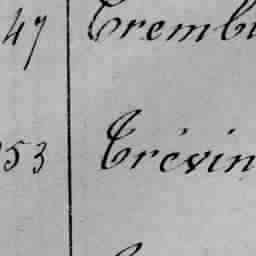 47 Trembl
53 Trévin